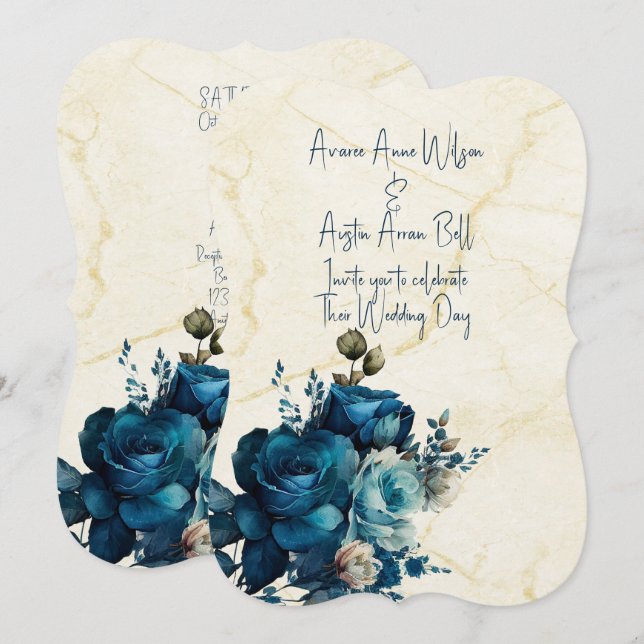 Avaree Anne Wilson
&
Austin Arran Bell
Invite you to celebrate
Their Wedding Day
Oct
Recepti
Be
123